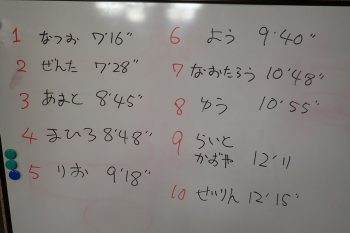 1 なつお 7'16"
2 ぜんた 7'28"
3 あまと 8'45"
4 まひろ 8'48"
5 りお 9'18"
6 よう 9'40"
7 なおたろう 10'48"
8 ゆう 10'55"
9 らいと
かおや 12'11
10 せいりん 12'15"